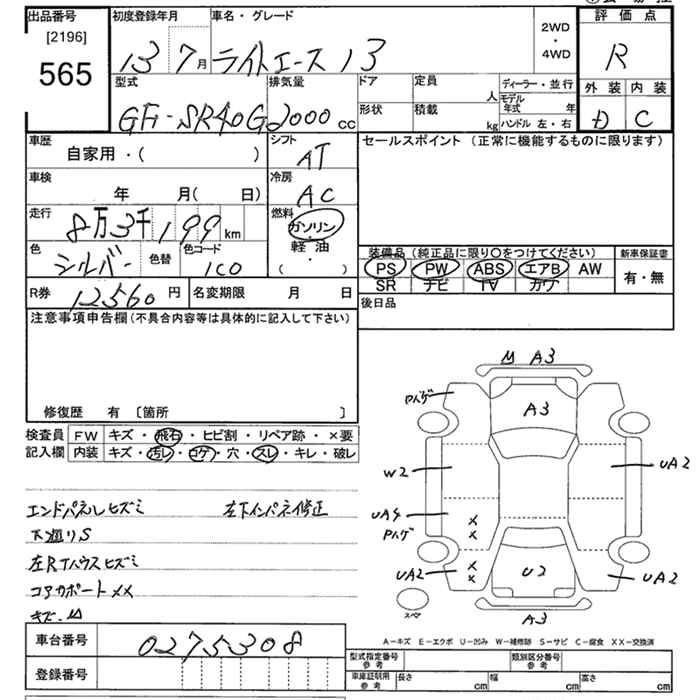 出品番号
[2196]
565
初度登録年月
13 7月
車名・グレード
ライトエース 13
2WD
・
4WD
評価点
R
外装 内装
D C
型式
GF-SR40G
排気量
2000 cc
ドア
定員
人
形状
積載
kg
ディーラー・並行
モデル年式 年
ハンドル 左・右
車歴
自家用・( )
シフト
AT
セールスポイント (正常に機能するものに限ります)
車検
年 月( 日)
冷房
AC
走行
8万3千199 km
燃料
ガソリン
・
軽油
・
( )
色
シルバー
色替
色コード
1C0
装備品 (純正品に限り○をつけてください)
PS PW ABS エアB AW
SR ナビ TV カワ
新車保証書
有・無
R券 12560 円
名変期限 月 日
後日品
注意事項申告欄 (不具合内容等は具体的に記入して下さい)
修復歴 有 [箇所 ]
検査員記入欄
FW キズ・飛石・ヒビ割・リペア跡・×要
内装 キズ・汚レ・コゲ・穴・スレ・キレ・破レ
エンドパネルヒズミ 左下インパネ修正
下廻りS
左RTハウスヒズミ
コアサポートXX
キズ・凹
M A3
Pハゲ
A3
W2
UA2
UA4
Pハゲ
× ×
× ×
UA2
U2
UA2
スペア
A3
A-キズ E-エクボ U-凹み W-補修跡 S-サビ C-腐食 XX-交換済
車台番号 0275308
登録番号
型式指定番号 参考
類別区分番号 参考
車庫証明用 参考 長さ cm 幅 cm 高さ cm